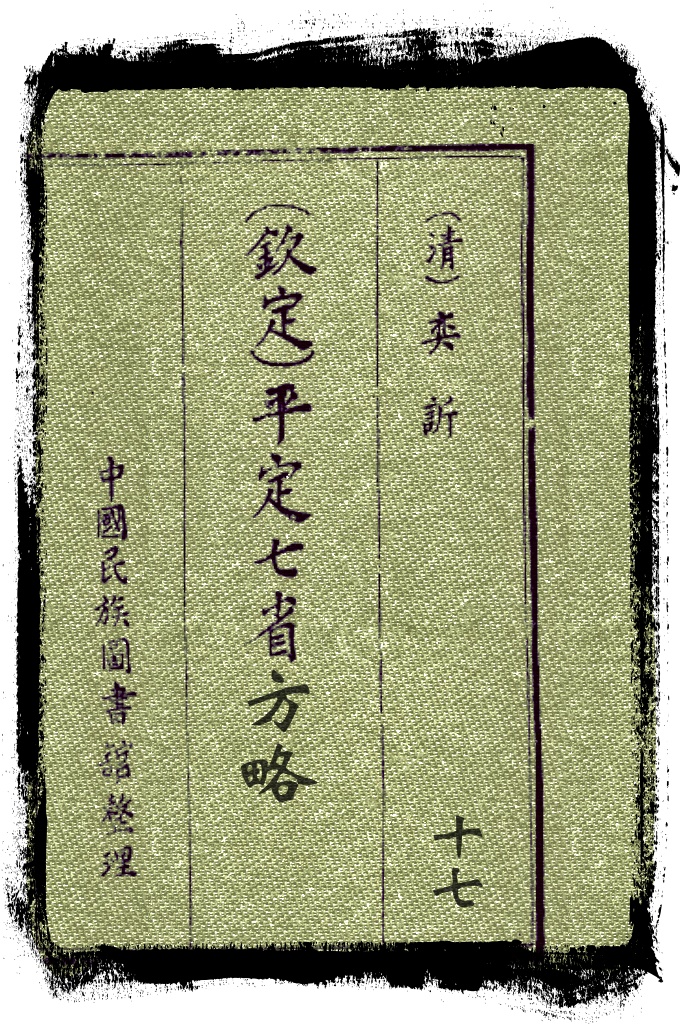 (清)奕訢
十七
(欽定)平定七省方略
中國民族圖書館整理